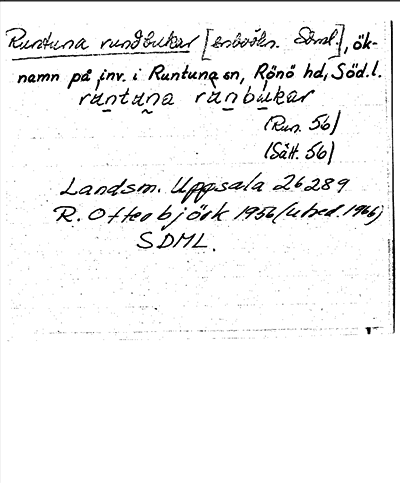 Runtuna rundbukar [inbošln. Söml.], ök-
namn på inv. i Runtuna sn, Rönö hd, Söd.l.
runtuna runbukar
(Run. 56)
(Sätt. 56)
Landsm. Uppsala 26289
R. Otterbjörk 1956 (utred. 1966)
SDML.